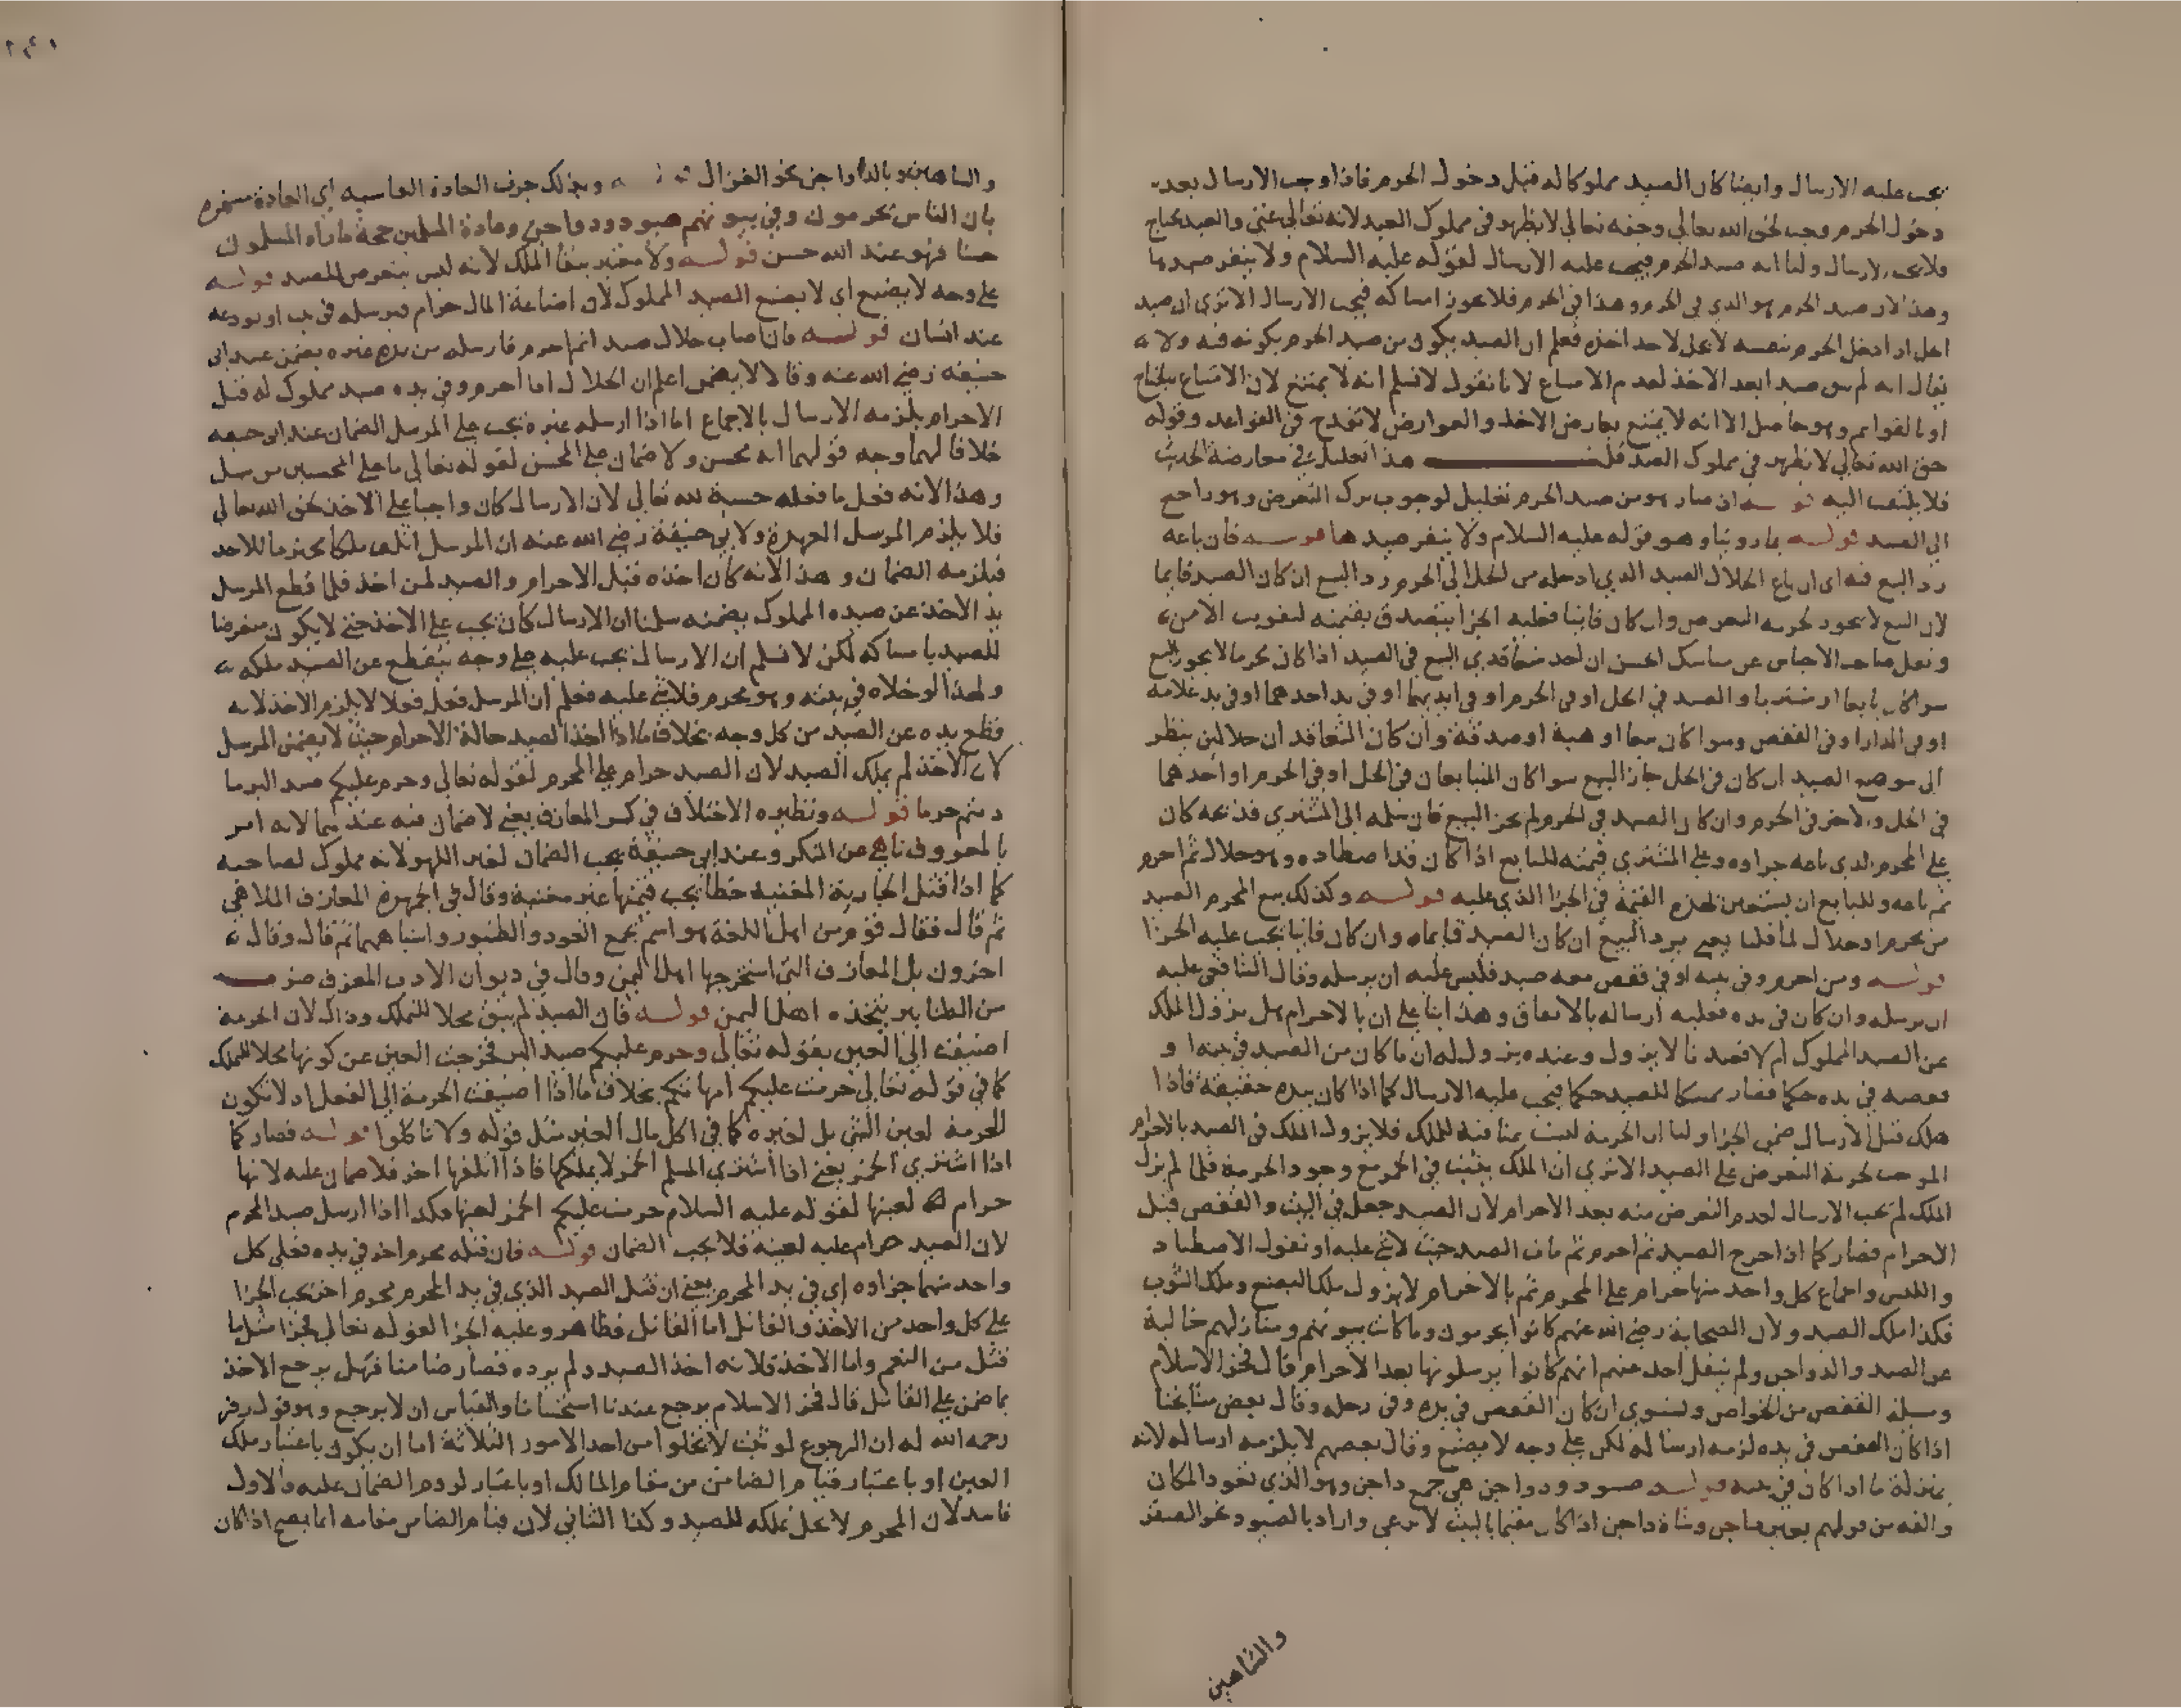 يجب عليه الارسال وايضا كان الصيد مملوكا له قبل دخول الحرم فاذا وجب الارسال بعد
دخول الحرم وجب لحق الله تعالى وحقه تعالى لا يظهر في مملوك العبد لانه تعالى غني والعبد محتاج
فلا يجب الارسال ولنا انه صيد الحرم فيجب عليه الارسال لقوله عليه السلام ولا ينفر صيدها
وهذا لان صيد الحرم هو الذي في الحرم وهذا في الحرم فلا يجوز امساكه فيجب الارسال الا ترى ان صيد
الحل اذا دخل الحرم بنفسه لا يحل لاحد اخذه فعلم ان الصيد يكون من صيد الحرم بكونه فيه ولا
يقال انه لم يبق صيدا بعد الاخذ لعدم الامتناع لانا نقول لا نسلم انه لا يمتنع لان الامتناع بالجناح
او بالقوايم وهو حاصل الا انه لا يمتنع بعارض الاخذ والعوارض لا تقدح في القواعد وقوله
حق الله تعالى لا يظهر في مملوك العبد قلت هذا تعليل في معارضة الحديث
فلا يلتفت اليه قوله اذ صار هو من صيد الحرم تعليل لوجوب ترك التعرض وهو راجع
الى الصيد قوله بما روينا وهو قوله عليه السلام ولا ينفر صيدها قوله فان باعه
رد البيع فيه اى ان باع الحلال الصيد الذي ادخله من الحل الى الحرم رد البيع ان كان الصيد قايما
لان البيع لا يجوز لحرمة التعرض وان كان فايتا فعليه الجزا يتصدق بقيمته لتفويت الامن
ونقل صاحب الاجناس عن مناسك الحسن ان احد متعاقدي البيع في الصيد اذا كان محرما لا يجوز البيع
سوا كان بايعا او مشتريا والصيد في الحل او في الحرم او في ايديهما او في يد احدهما او في يد غلامه
او في الدار او في القفص وسوا كان بيعا او هبة او صدقة وان كان المتعاقدان حلالين ينظر
الى موضع الصيد ان كان في الحل جاز البيع سوا كان المتبايعان في الحل او في الحرم او احدهما
في الحل والاخر في الحرم وان كان الصيد في الحرم لم يجز البيع فان سلمه الى المشتري فذبحه كان
على المحرم الذي باعه جزاوه وعلى المشتري قيمته للبايع اذا كان قد اصطاده وهو حلال ثم احرم
ثم باعه وللبايع ان يستعين بهذه القيمة في الجزا الذي عليه قوله وكذلك بيع المحرم الصيد
من محرم او حلال لما قلنا يعني يرد البيع ان كان الصيد قايما وان كان فايتا يجب عليه الجزا
قوله ومن احرم وفي بيته او في قفص معه صيد فليس عليه ان يرسله وقال الشافعي عليه
ان يرسله وان كان في يده فعليه ارساله بالاتفاق وهذا بنا على ان بالاحرام هل يزول الملك
عن الصيد المملوك ام لا فعندنا لا يزول وعنده يزول له ان ما كان من الصيد في بيته او
قفصه في يده حكما فصار ممسكا للصيد حكما فيجب عليه الارسال كما اذا كان بيده حقيقة فاذا
هلك قبل الارسال ضمن الجزا ولنا ان الحرمة ليست بمنافية للملك فلا يزول الملك في الصيد بالاحرام
الموجب لحرمة التعرض على الصيد الا ترى ان الملك يثبت في الخمر مع وجود الحرمة فلما لم يزل
الملك لم يجب الارسال لعدم التعرض منه بعد الاحرام لان الصيد جعل في البيت والقفص قبل
الاحرام فصار كما اذا جرح الصيد ثم احرم ثم مات الصيد حيث لا شي عليه او نقول الاصطياد
واللبس والجماع كل واحد منها حرام على المحرم ثم بالاحرام لا يزول ملك البضع وملك الثوب
فكذا ملك الصيد ولان الصحابة رضي الله عنهم كانوا يحرمون وما كانت بيوتهم ومنازلهم خالية
عن الصيد والدواجن ولم ينقل احد عنهم انهم كانوا يرسلونها بعد الاحرام قال فخر الاسلام
ومسلة القفص من الخواص ويستوي ان كان القفص في يده وفي رحله وقال بعض مشايخنا
اذا كان القفص في يده لزمه ارساله لكن على وجه لا يضيع وقال بعضهم لا يلزمه ارساله لانه
بمنزلة ما اذا كان في بيته قوله صيود ودواجن هي جمع داجن وهو الذي تعود المكان
والفه من قولهم داجن وشاة داجن اذا كان مقيما بالبيت لا يرعى واراد بالصيود نحو الصقر
والشاهين
والشاهين وبالدواجن نحو الغزال وبذلك جرت العادة الفاشية اي العادة مستمرة
بان الناس يحرمون وفي بيوتهم صيود ودواجن وعادة المسلمين حجة ما راه المسلمون
حسنا فهو عند الله حسن قوله ولا معتبر ببقا الملك لانه ليس بتعرض للصيد قوله
على وجه لا يضيع اي لا يضيع الصيد المملوك لان اضاعة المال حرام فيرسله في بيت او يودعه
عند انسان قوله فان اصاب حلال صيدا ثم احرم فارسله من يده غيره يضمن عند ابي
حنيفة رضي الله عنه وقالا لا يضمن اعلم ان الحلال اذا احرم وفي يده صيد مملوك له قبل
الاحرام يلزمه الارسال بالاجماع اما اذا ارسله غيره يجب على المرسل الضمان عند ابي حنيفة
خلافا لهما وجه قولهما انه محسن ولا ضمان على المحسن لقوله تعالى ما على المحسنين من سبيل
وهذا لانه فعل ما فعله حسبة لله تعالى لان الارسال كان واجبا على الاخذ لحق الله تعالى
فلا يلزم المرسل العهدة ولابي حنيفة رضي الله عنه ان المرسل اتلف ملكا محترما للاخذ
فيلزمه الضمان وهذا لانه كان اخذه قبل الاحرام والصيد لمن اخذ فلما قطع المرسل
يد الاخذ عن صيده المملوك يضمنه سلمنا ان الارسال كان يجب على الاخذ حتى لا يكون متعرضا
للصيد بامساكه لكن لا نسلم ان الارسال يجب عليه على وجه ينقطع عن الصيد ملكه
ولهذا لو خلاه في بيته وهو محرم فلا شي عليه فعلم ان المرسل فعل فعلا لا يلزم الاخذ لانه
قطع يده عن الصيد من كل وجه بخلاف ما اذا اخذ الصيد حالة الاحرام حيث لا يضمن المرسل
لان الاخذ لم يملك الصيد لان الصيد حرام على المحرم لقوله تعالى وحرم عليكم صيد البر ما
دمتم حرما قوله ونظيره الاختلاف في كسر المعازف يعني لا ضمان فيه عندهما لانه امر
بالمعروف ناهي عن المنكر وعند ابي حنيفة يجب الضمان لغير اللهو لانه مملوك لصاحبه
كما اذا قتل الجارية المغنية خطا يجب قيمتها غير مغنية وقال في الجمهرة المعازف الملاهي
ثم قال فقال قوم من اهل اللغة هو اسم يجمع العود والطنبور واشباههما ثم قال وقال
اخرون بل المعازف التي استخرجها اهل اليمن وقال في ديوان الادب المعزف ضرب
من الطنابير يتخذه اهل اليمن قوله فان الصيد لم يبق محلا للتملك وذاك لان الحرمة
اضيفت الى العين بقوله تعالى وحرم عليكم صيد البر فخرجت العين عن كونها محلا للتملك
كما في قوله تعالى حرمت عليكم امهاتكم بخلاف ما اذا اضيفت الحرمة الى الفعل اذ لا تكون
الحرمة لعين الشي بل لغيره كما في اكل مال الغير مثل قوله ولا تاكلوا قوله فصار كما
اذا اشترى الخمر يعني اذا اشترى المسلم الخمر لا يملكها فاذا اتلفها اخر فلا ضمان عليه لانها
حرام لعينها لقوله عليه السلام حرمت عليكم الخمر لعينها فكذا اذا ارسل صيد المحرم
لان الصيد حرام عليه لعينه فلا يجب الضمان قوله فان قتله محرم اخر في يده فعلى كل
واحد منهما جزاوه اي في يد المحرم يعني ان قتل الصيد الذي في يد المحرم محرم اخر يجب الجزا
على كل واحد من الاخذ والقاتل اما القاتل فظاهر وعليه الجزا لقوله تعالى فجزا مثل ما
قتل من النعم واما الاخذ فلانه اخذ الصيد ولم يرده فصار ضامنا فهل يرجع الاخذ
بما ضمن على القاتل قال فخر الاسلام يرجع عندنا استحسانا والقياس ان لا يرجع وهو قول زفر
رحمه الله له ان الرجوع لو ثبت لا يخلوا من احد الامور الثلاثة اما ان يكون باعتبار ملك
العين او باعتبار قيام الضامن من مقام المالك او باعتبار لزوم الضمان عليه والاول
فاسد لان المحرم لا يحل تملكه للصيد وكذا الثاني لان قيام الضامن مقامه انما يصح اذا كان